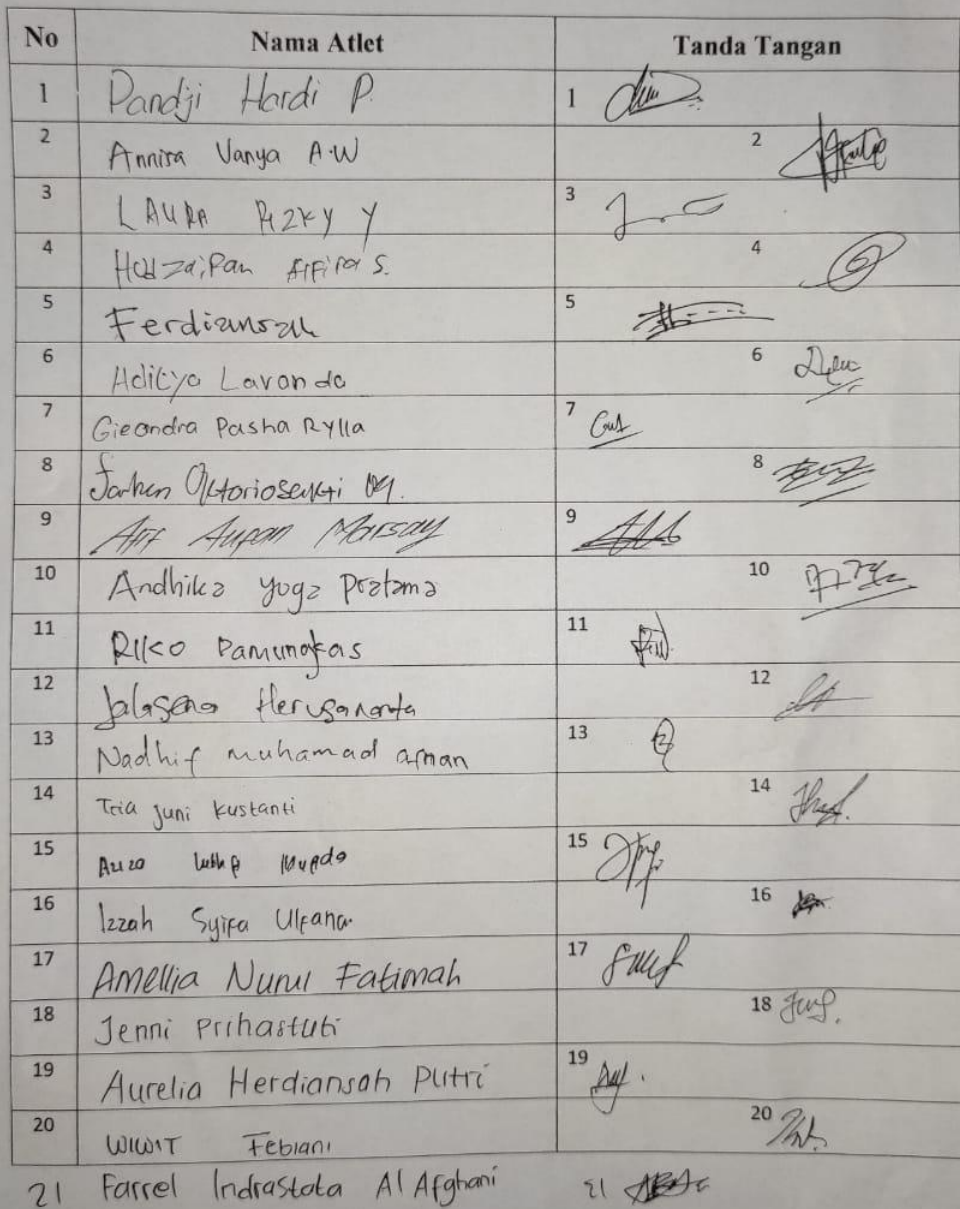 No Nama Atlet Tanda Tangan
1 Pandji Hardi P. 1
2 Annisa Vanya A.W 2
3 LAURA RIZKY Y 3
4 S. 4
5 Ferdiansah 5
6 Aditya Lavanda 6
7 Gieandra Pasha Rylla 7
8 8
9 9
10 Andhika yoga Pratama 10
11 RIKO Pamungkas 11
12 Jalasena Herusananta 12
13 Nadhif muhamad afnan 13
14 Tria Juni Kustanti 14
15 15
16 Izzah Syifa Ulfana 16
17 Amellia Nurul Fatimah 17
18 Jenni Prihastuti 18
19 Aurelia Herdiansah Putri 19
20 WIWIT Febiani 20
21 Farrel Indrastata Al Afghani 21